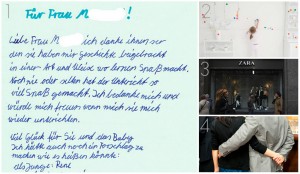 1
Für Frau M!
Liebe Frau M ich danke ihnen
den sie haben mir geschichte beigebracht
in einer Art und Weise wo lernen Spaß macht.
Noch nie oder selten hat der Unterricht so
viel Spaß gemacht. Ich bedanke mich und
würde mich freuen wenn mich sie mich
wieder unterrichten.
Viel Glück für Sie und das Baby
Ich hätte auch noch ein Vorschlag zu
machen wie es heißen könnte:
als Junge: René
2
3
ZARA
4